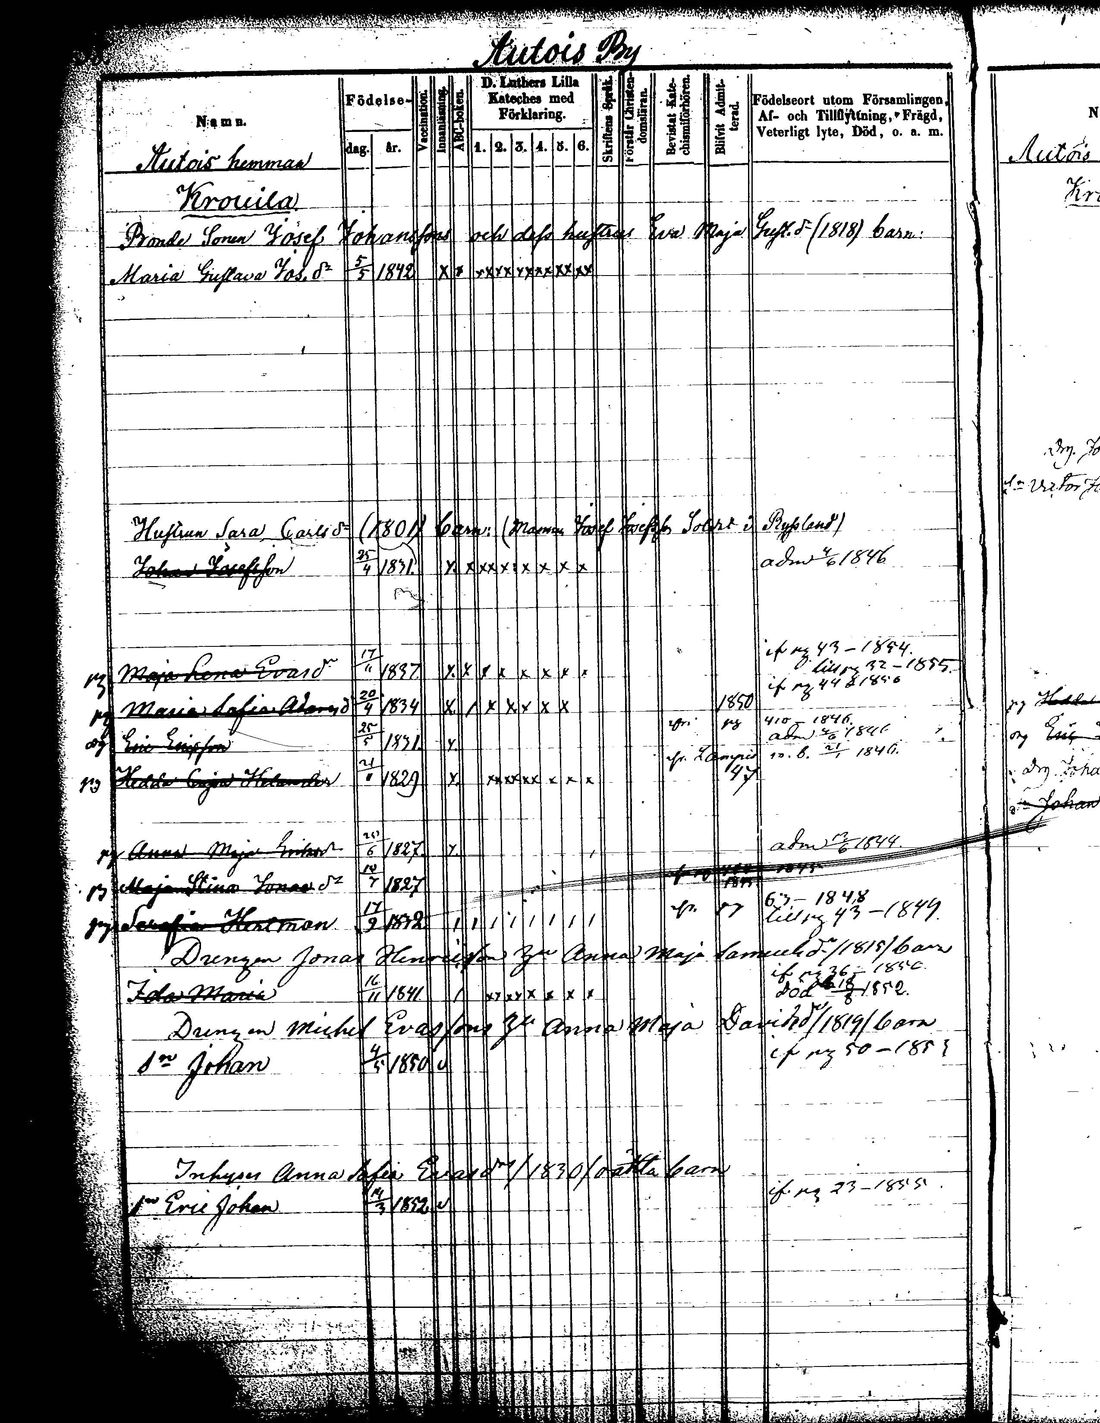 Autois By
Namn.
Födelse-
dag.
år.
Vaccination.
Innanläsning.
ABC-boken.
D. Luthers Lilla
Kateches med
Förklaring.
1. 2. 3. 4. 5. 6.
Skriftens Språk.
Förstår Christen-
domsläran.
Bevistat Kate-
chismiförhören.
Blifvit Admit-
terad.
Födelseort utom Församlingen,
Af- och Tillflyttning, Frägd,
Veterligt lyte, Död, o. a. m.
Autois hemman
Krouila
Bonde Sonen Josef Johanssons och dess hustrus Eva Maja Gust.dr (1818) barn:
Maria Gustava Jos.dr 5/5 1842 x x xx xx xx xx xx xx
Hustrun Sara Carlsdr (1801) barn: (Mannen Josef Josefsson Soldat i Ryssland)
Johan Josefsson 25/4 1831. x x xx x x x x x adm 1846
if pg 43 – 1854.
Maja Lena Evasdr 17 1837 x x x x x x x x till pg 32 – 1855.
if pg 44 1856
Maria Sofia Adamsdr 20/4 1834 x / x x x x x 1850
410 – 1846.
Eric Ericsson 25/5 1831 x adm 1846
Hedda Cajsa Helander 21 1829 x. xx xx xx x x x Lampis 47 1846.
Anna Maja Ericsdr 6 1827. x. adm 1844.
Maja Stina Jonasdr 10/7 1827 1845
pg 63 – 1848
Serafia Hertman 17/9 1832 / / / / / / / / till pg 43 – 1849.
Drengen Jonas Henricsson Anna Maja Samuelsdr /1815/ barn
if pg 36 – 1850.
Ida Maria 16/11 1841 / xx xx x x x x död 1852.
Drengen Michel Evassons Anna Maja Davidsdr /1819/ barn
Sn Johan 4/5 1850 v if pg 50 – 1853
Inhyses Anna Sofia Evasdrs /1830/ oäkta barn
Sn Eric Johan 3 1852 v if pg 23 – 1855.
N
Autois
Kro
Drg. Jo
Sn Victor Jo
Hedda
Eric
Drg. Joha
Johan